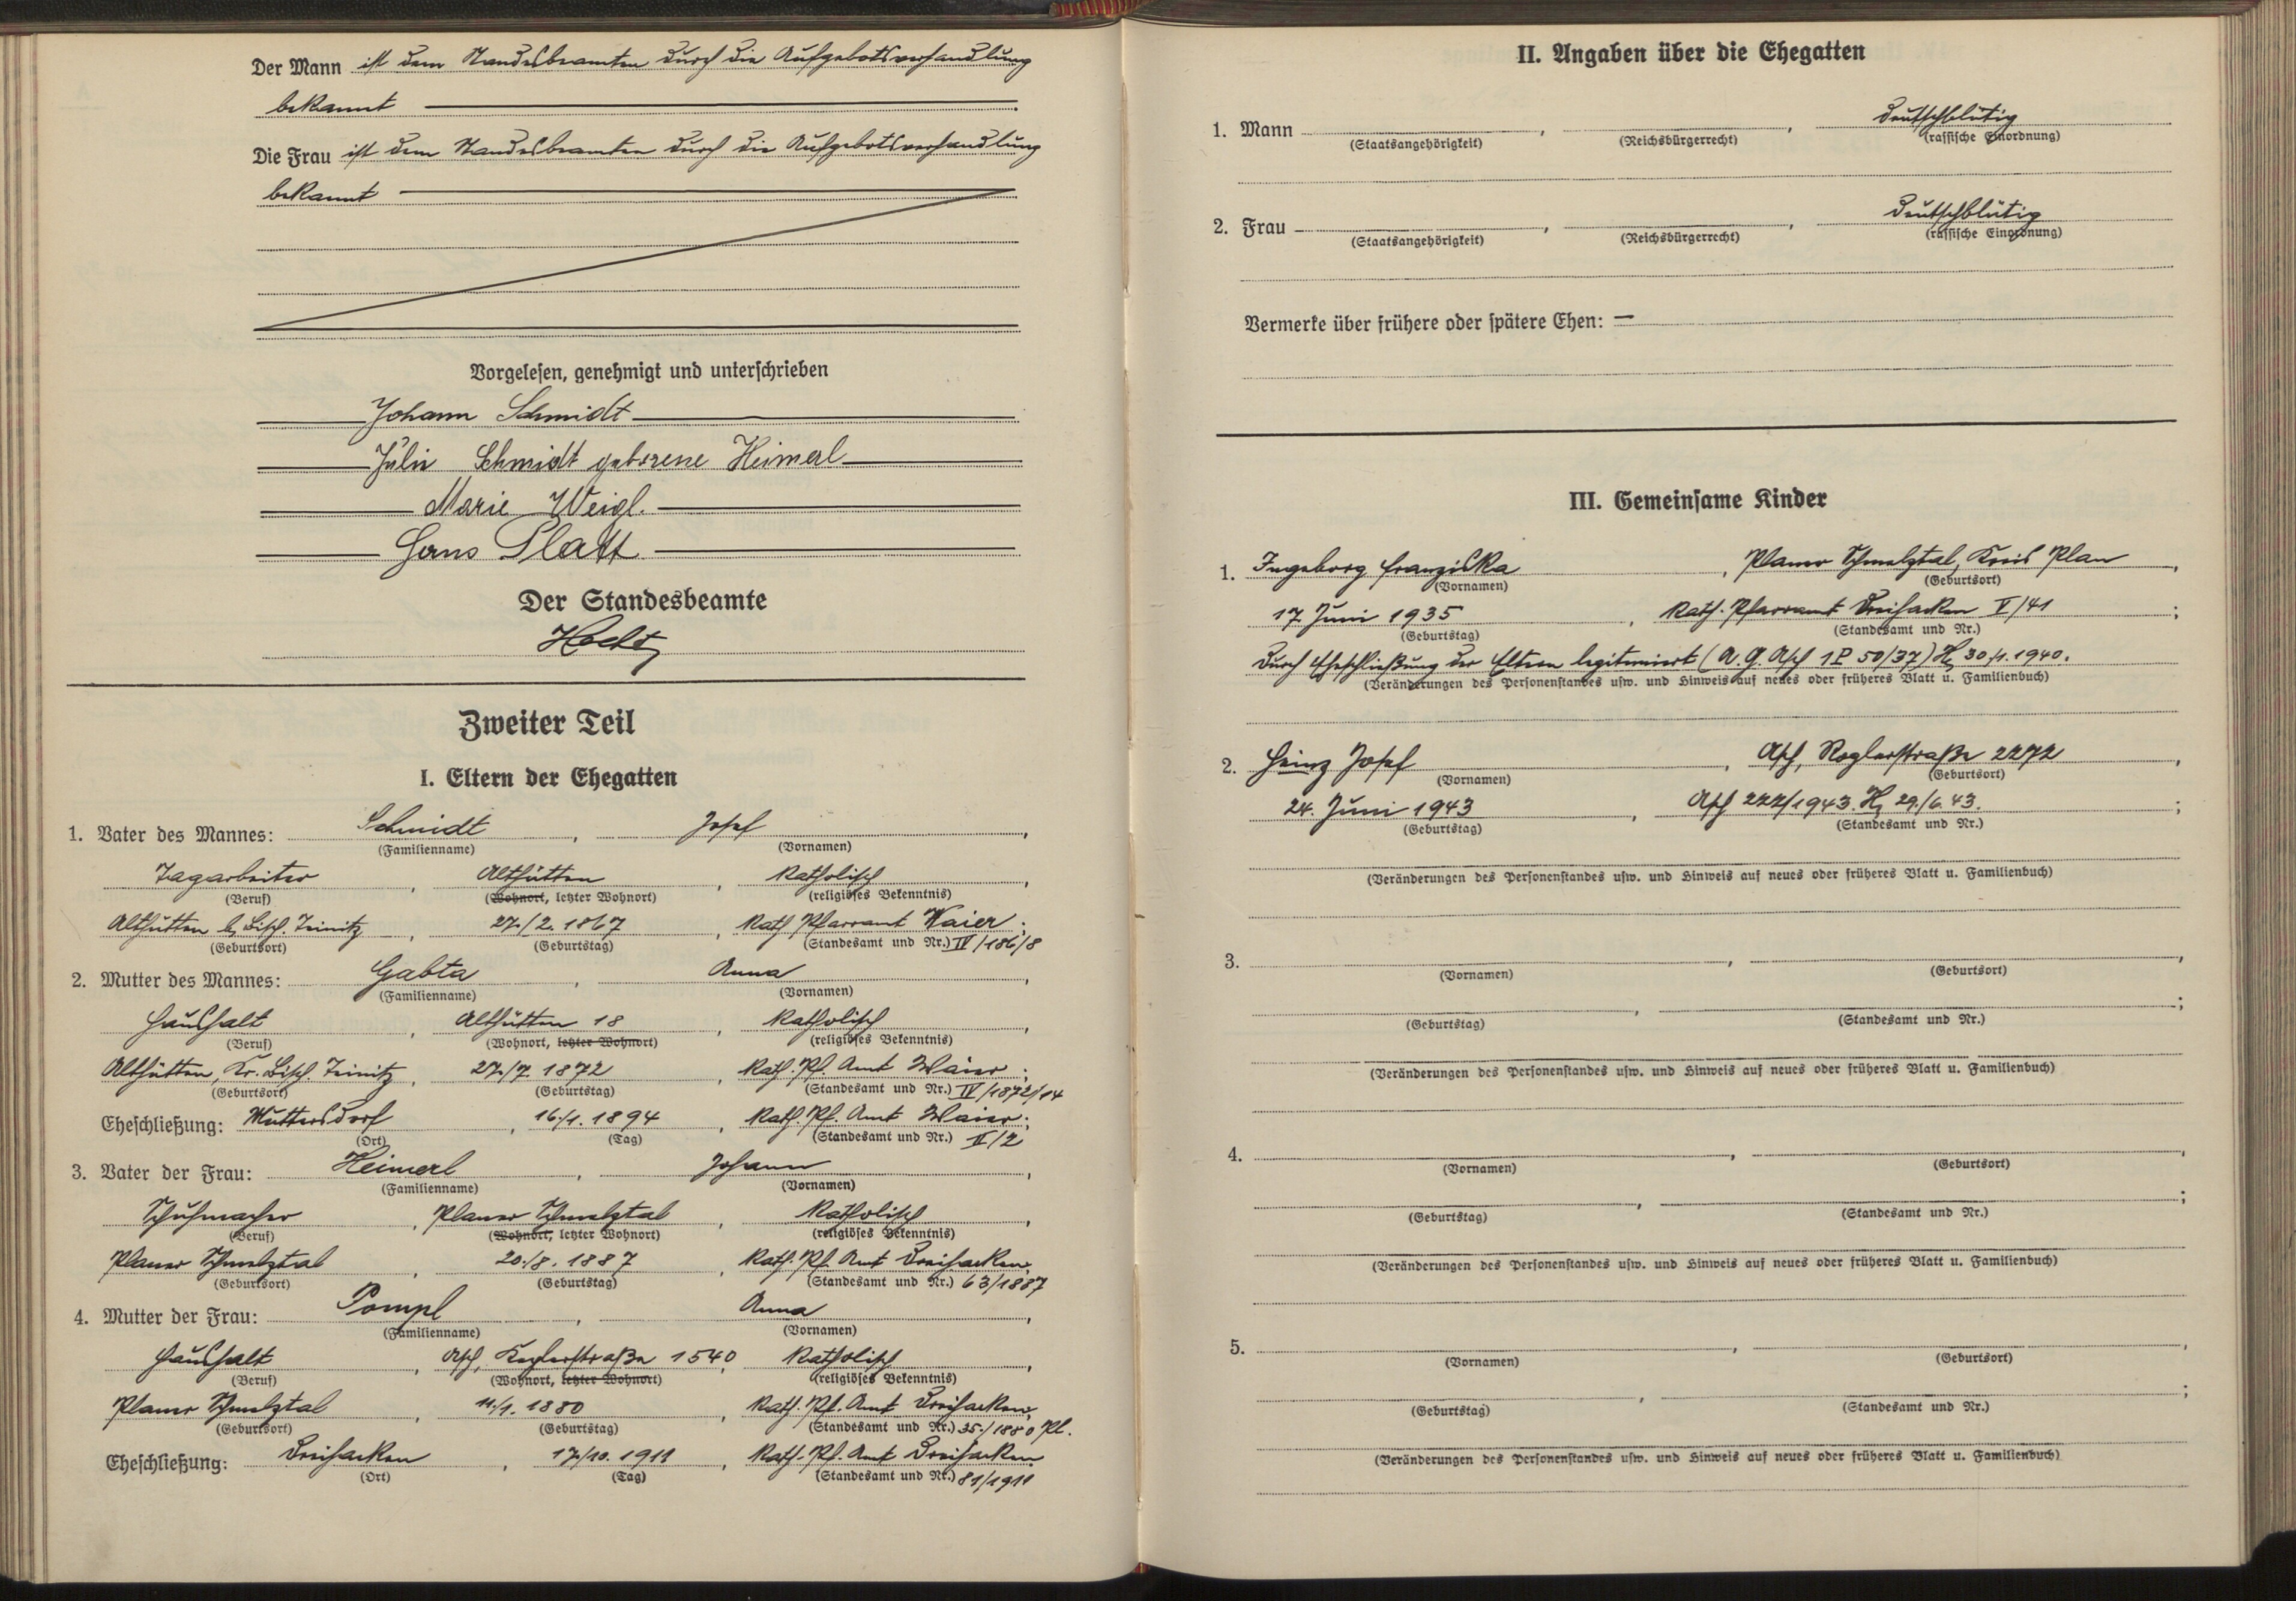 Der Mann ist dem Standesbeamten durch die Aufgebotsverhandlung
bekannt
Die Frau ist dem Standesbeamten durch die Aufgebotsverhandlung
bekannt
Vorgelesen, genehmigt und unterschrieben
Johann Schmidt
Julie Schmidt geborene Heimerl
Marie Weigl.
Hans Platt
Der Standesbeamte
Zweiter Teil
I. Eltern der Ehegatten
1. Vater des Mannes: Schmidt, Josef,
(Familienname) (Vornamen)
Tagarbeiter, Althütten, katholisch,
(Beruf) (Wohnort, letzter Wohnort) (religiöses Bekenntnis)
Althütten b. Bisch. Teinitz, 27./2. 1867, Kath Pfarramt Waier;
(Geburtsort) (Geburtstag) (Standesamt und Nr.) IV/186/8
2. Mutter des Mannes: Gabta, Anna,
(Familienname) (Vornamen)
Haushalt, Althütten 18, katholisch,
(Beruf) (Wohnort, letzter Wohnort) (religiöses Bekenntnis)
Althütten, Kr. Bisch. Teinitz, 27./7. 1872, Kath. Pf. Amt Waier;
(Geburtsort) (Geburtstag) (Standesamt und Nr.) IV/1872/14
Eheschließung: Muttersdorf, 16./1. 1894, Kath. Pf. Amt Waier;
(Ort) (Tag) (Standesamt und Nr.) II/2
3. Vater der Frau: Heimerl, Johann,
(Familienname) (Vornamen)
Schuhmacher, Planer Schmelztal, katholisch,
(Beruf) (Wohnort, letzter Wohnort) (religiöses Bekenntnis)
Planer Schmelztal, 20./8. 1887, Kath. Pf. Amt Dreihacken;
(Geburtsort) (Geburtstag) (Standesamt und Nr.) 63/1887
4. Mutter der Frau: Pompl, Anna,
(Familienname) (Vornamen)
Haushalt, Asch, Roglerstraße 1540, katholisch,
(Beruf) (Wohnort, letzter Wohnort) (religiöses Bekenntnis)
Planer Schmelztal, 11./1. 1880, Kath. Pf. Amt Dreihacken,
(Geburtsort) (Geburtstag) (Standesamt und Nr.) 35./1880 Pl.
Eheschließung: Dreihacken, 17./10. 1911, Kath. Pf. Amt Dreihacken
(Ort) (Tag) (Standesamt und Nr.) 81/1911
II. Angaben über die Ehegatten
1. Mann, , deutschblütig
(Staatsangehörigkeit) (Reichsbürgerrecht) (rassische Einordnung)
2. Frau, , deutschblütig
(Staatsangehörigkeit) (Reichsbürgerrecht) (rassische Einordnung)
Vermerke über frühere oder spätere Ehen: —
III. Gemeinsame Kinder
1. Ingeborg Franziska, Planer Schmelztal, Kreis Plan,
(Vornamen) (Geburtsort)
17. Juni 1935, Kath. Pfarramt Dreihacken V/41;
(Geburtstag) (Standesamt und Nr.)
Durch Eheschließung der Eltern legitimiert (A. G. Asch 1P 50/37) 30/1. 1940.
(Veränderungen des Personenstandes usw. und Hinweis auf neues oder früheres Blatt u. Familienbuch)
2. Heinz Josef, Asch, Roglerstraße 2272,
(Vornamen) (Geburtsort)
24. Juni 1943, Asch 222/1943. 29./6. 43.;
(Geburtstag) (Standesamt und Nr.)
(Veränderungen des Personenstandes usw. und Hinweis auf neues oder früheres Blatt u. Familienbuch)
3. , ,
(Vornamen) (Geburtsort)
, ;
(Geburtstag) (Standesamt und Nr.)
(Veränderungen des Personenstandes usw. und Hinweis auf neues oder früheres Blatt u. Familienbuch)
4. , ,
(Vornamen) (Geburtsort)
, ;
(Geburtstag) (Standesamt und Nr.)
(Veränderungen des Personenstandes usw. und Hinweis auf neues oder früheres Blatt u. Familienbuch)
5. , ,
(Vornamen) (Geburtsort)
, ;
(Geburtstag) (Standesamt und Nr.)
(Veränderungen des Personenstandes usw. und Hinweis auf neues oder früheres Blatt u. Familienbuch)